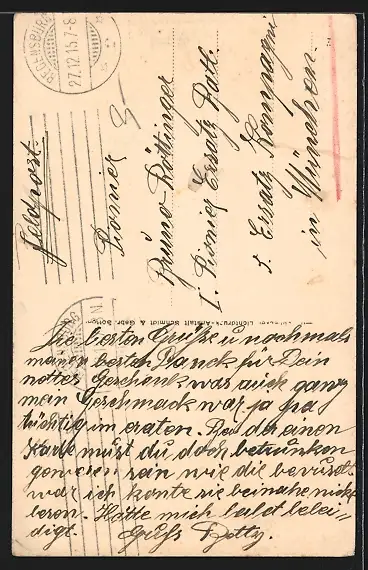 REGENSBURG
27.12.15.7-8
Feldpost.
Pionier
Bruno Röttinger
I. Pionier Ersatz Batl.
I. Ersatz Kompagni
in München.
Lichtdruck-Anstalt Schmidt &
Die besten Grüße u nochmals
meinen besten Danck für Dein
nettes Geschenk was auch ganz
mein Geschmack war ja ja
tüchtig im eraten. Bei der einen
Karte must du doch betrunken
gewesen sein wie die
war ich konte sie beinahe nicht
lesen. Hätte mich balet belei=
digt. Gruß Betty.